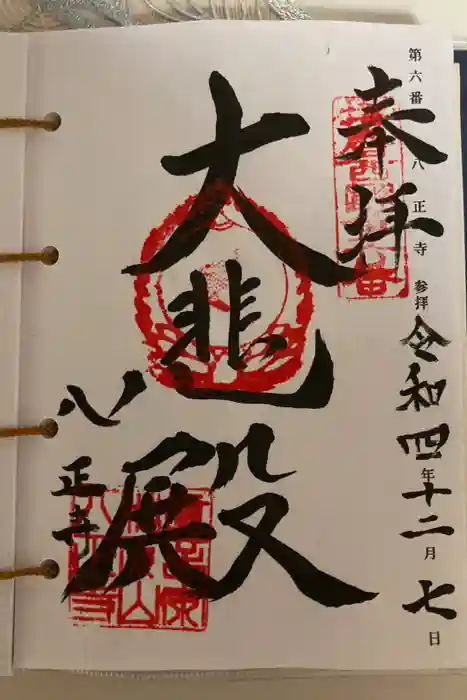 第六番 八正寺 参拝
令和四年十二月七日
奉拝
大悲殿
八正寺